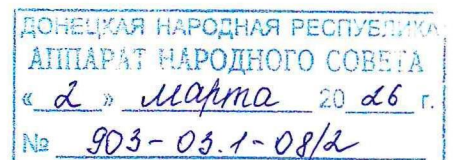 ДОНЕЦКАЯ НАРОДНАЯ РЕСПУБЛИКА
АППАРАТ НАРОДНОГО СОВЕТА
« 2 » марта 20 26 г.
№ 903-03.1-08/2